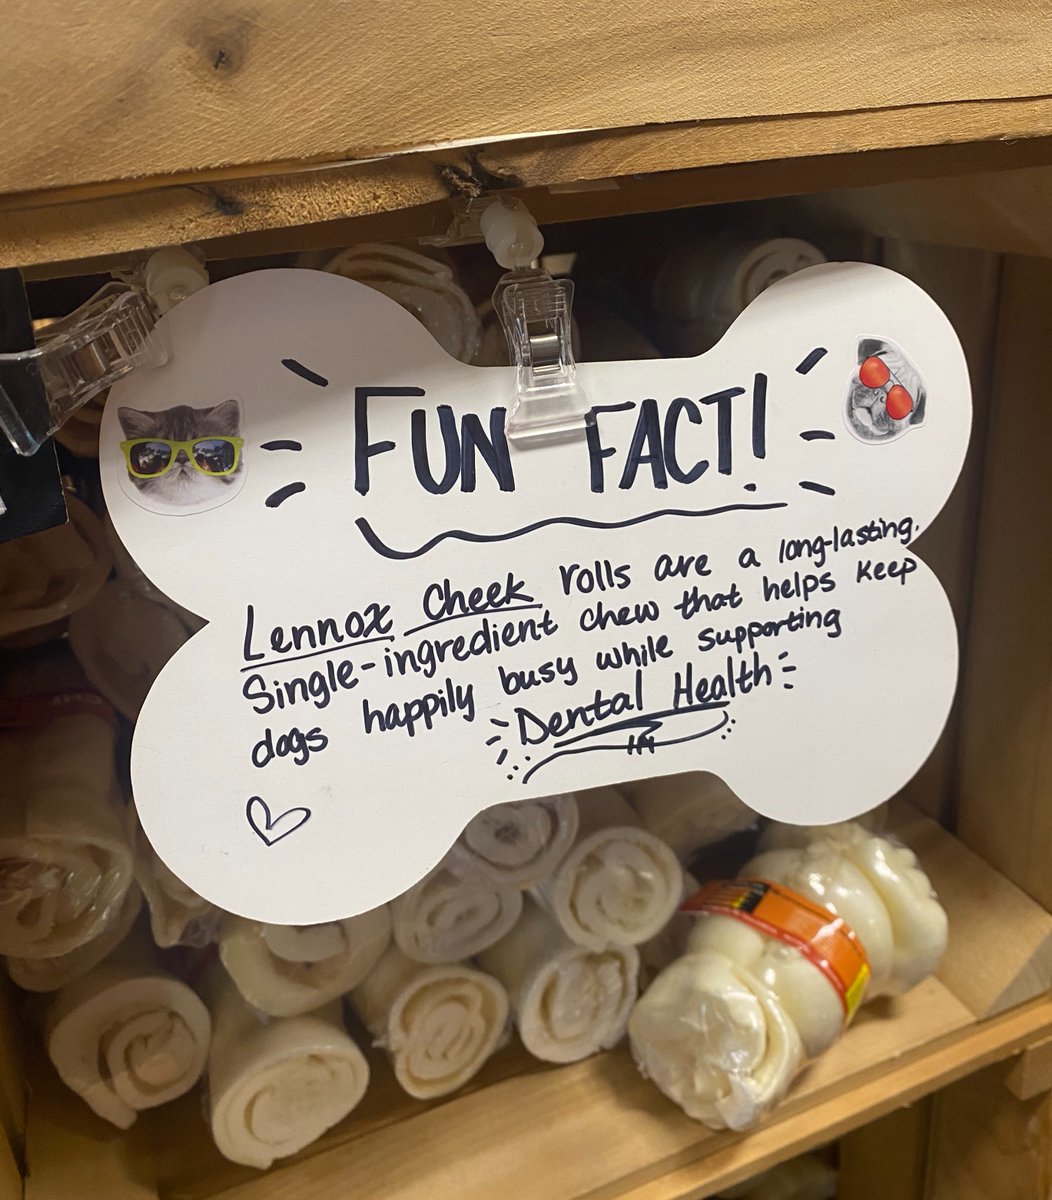 FUN FACT!
Lennox Cheek rolls are a long-lasting.
Single-ingredient chew that helps keep
dogs happily busy while supporting
Dental Health